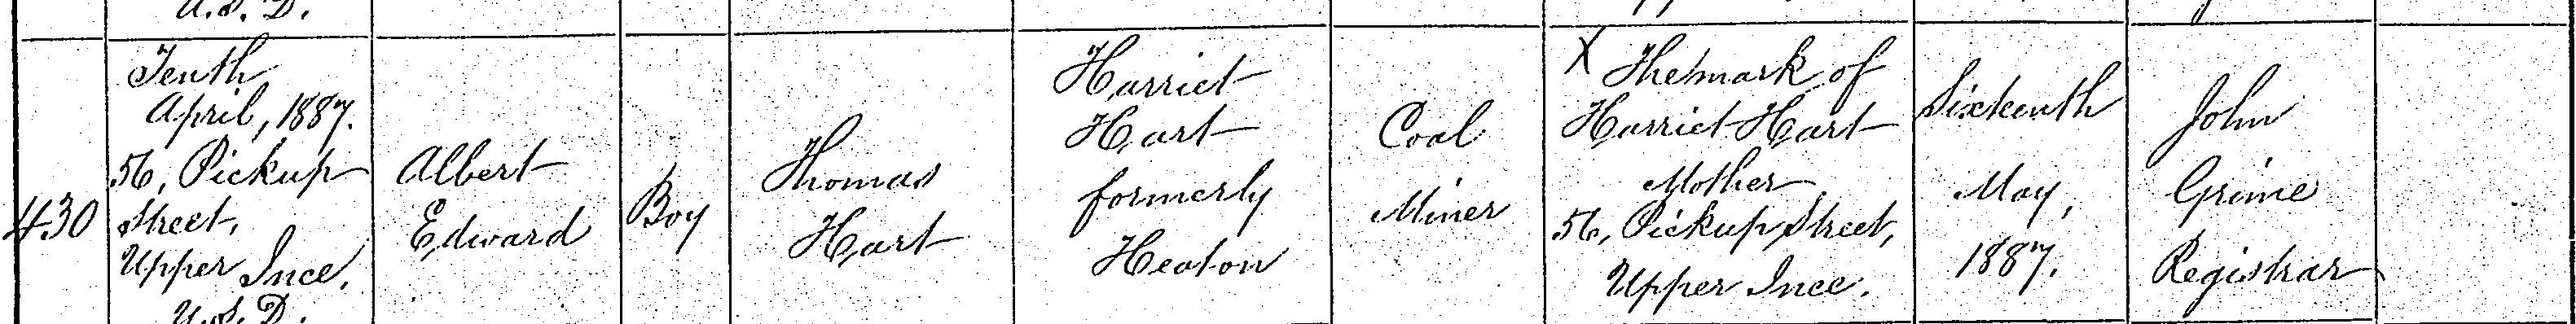 U.S.D.
430
Tenth
April, 1887.
56, Pickup
Street,
Upper Ince.
U.S.D.
Albert
Edward
Boy
Thomas
Hart
Harriet
Hart
formerly
Heaton
Coal
Miner
X The mark of
Harriet Hart
Mother,
56, Pickup Street,
Upper Ince.
Sixteenth
May,
1887.
John
Grime
Registrar